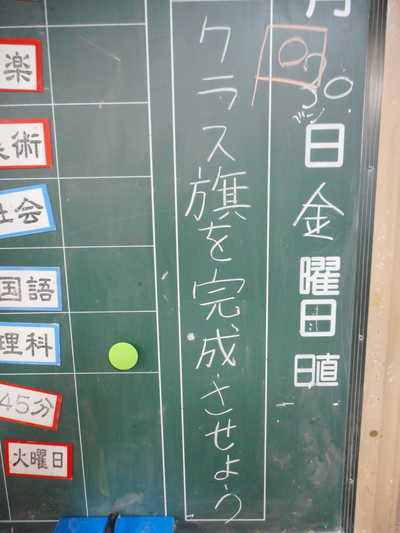 月
30
日
金曜日
日直
クラス旗を完成させよう
楽
美術
社会
国語
理科
45分
火曜日